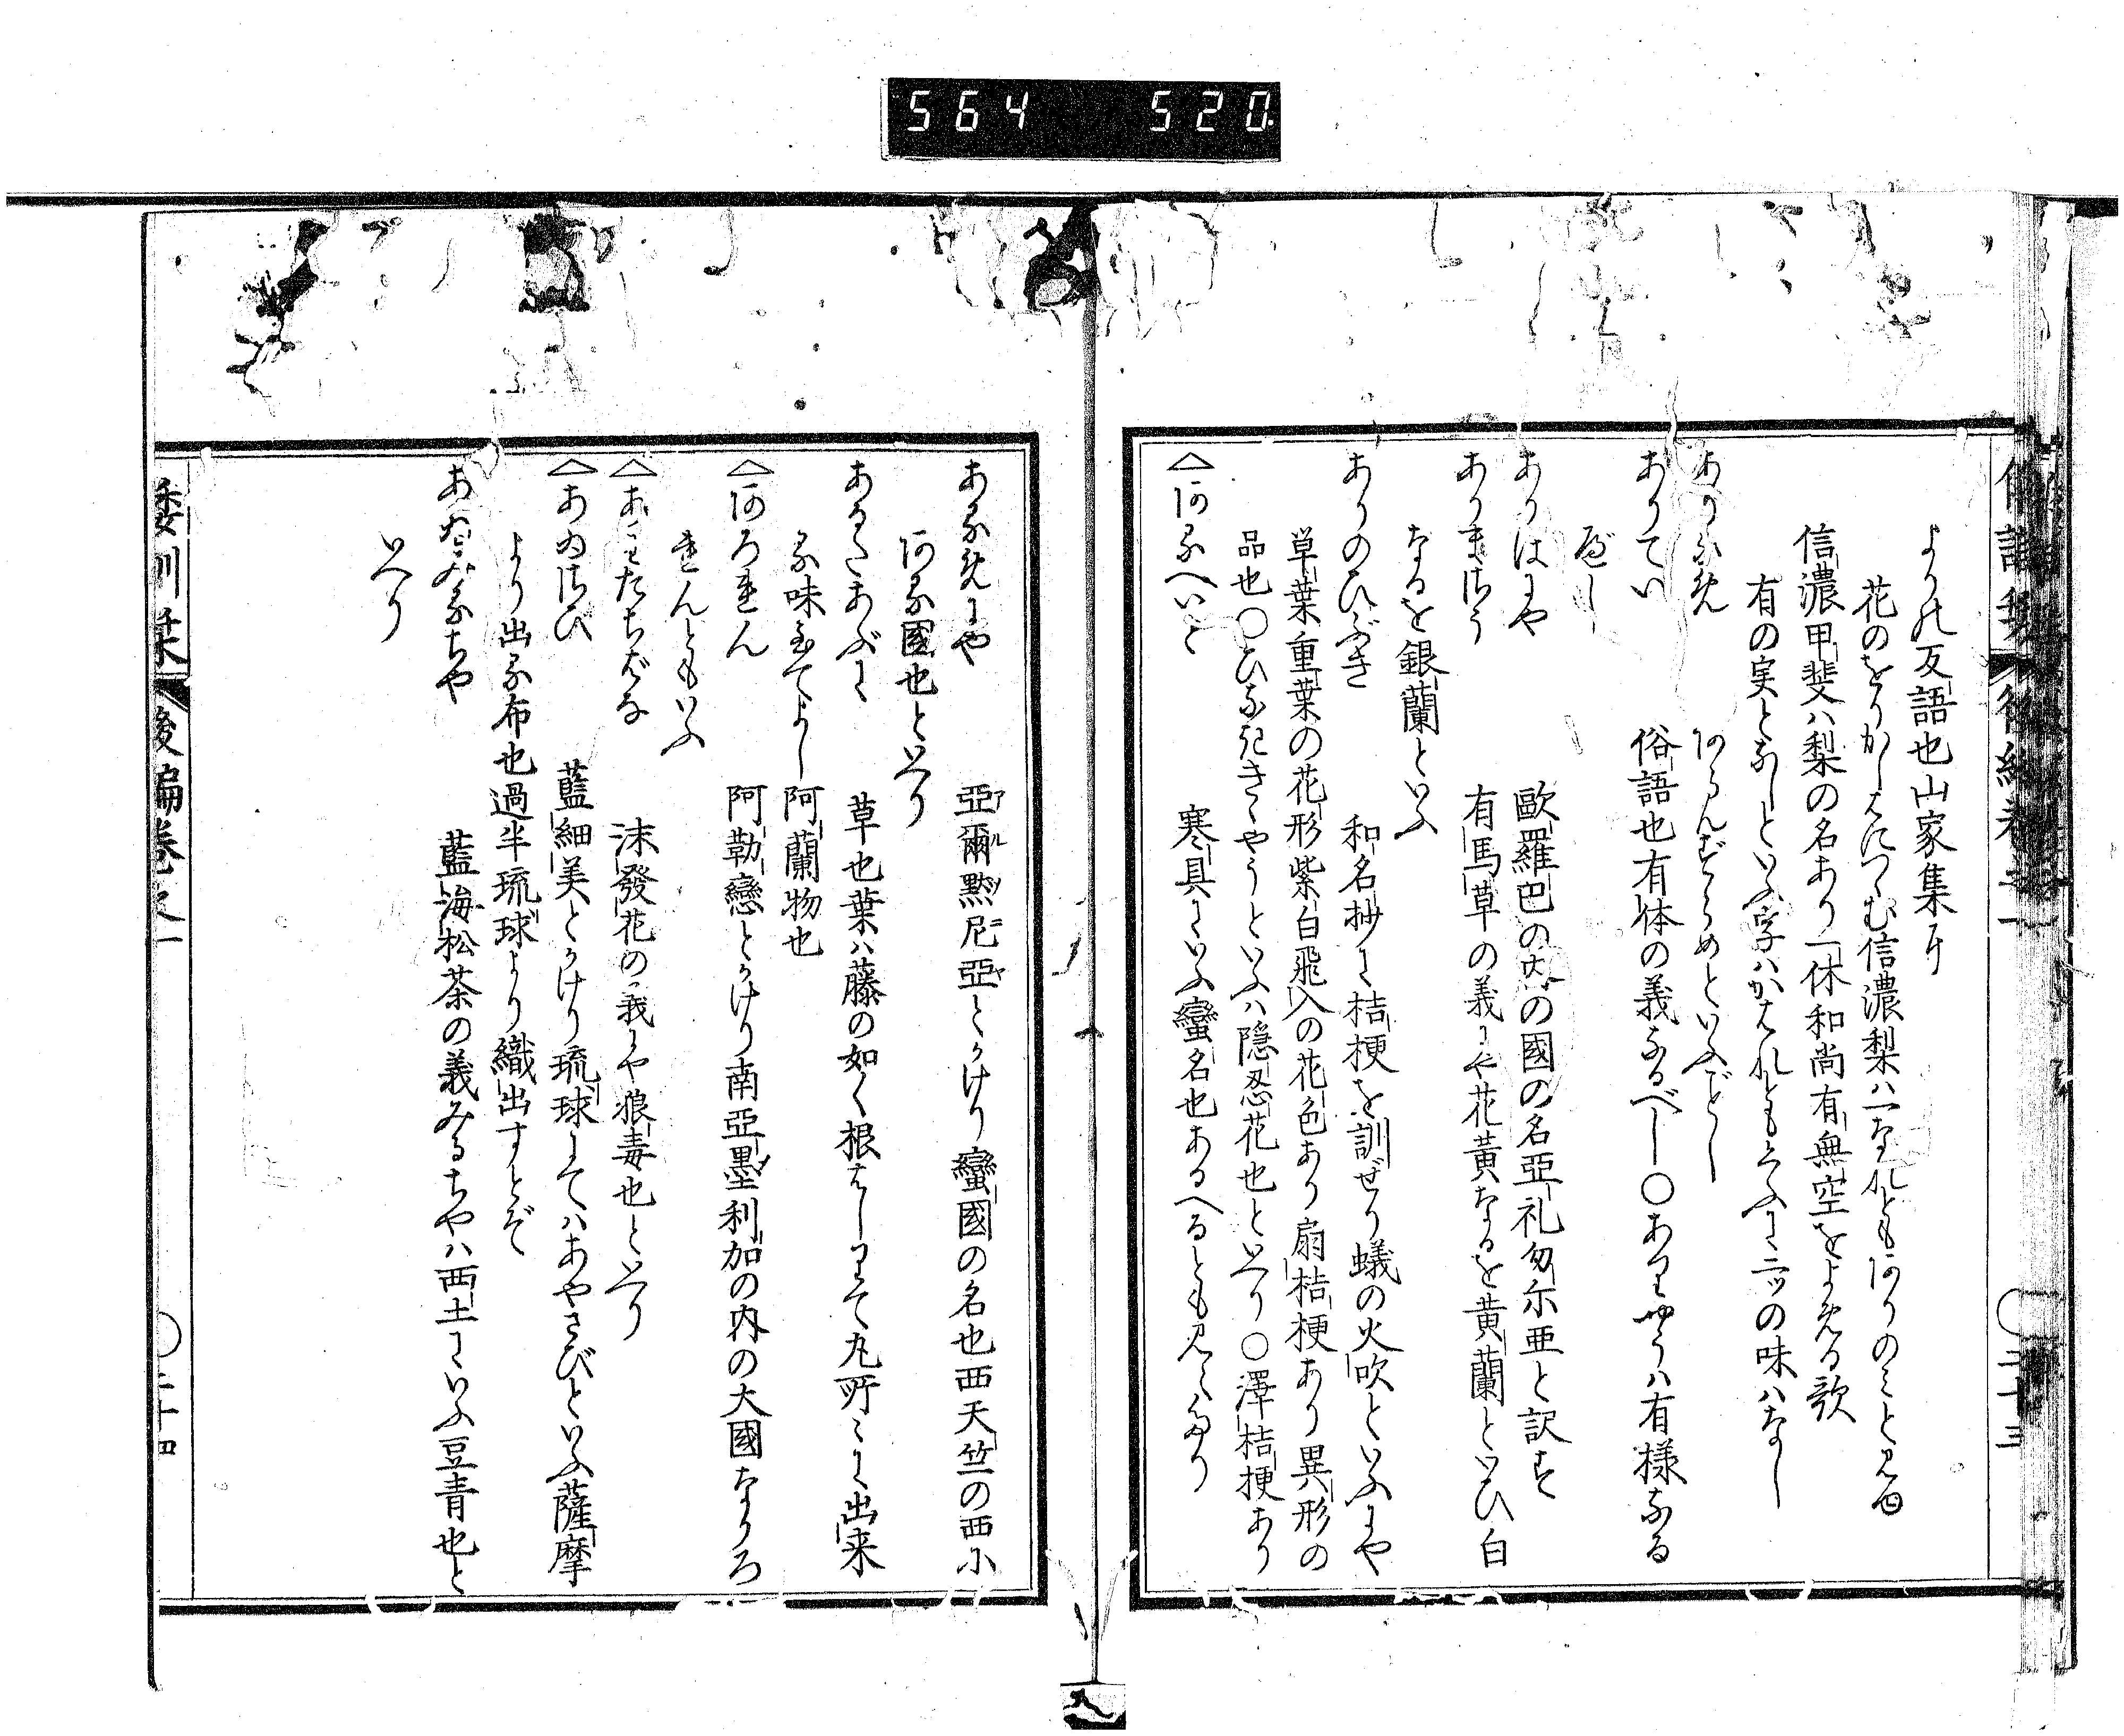 564 520
よりの反語也山家集に
花のをりかしはにつゝむ信濃梨ハ一なれとも阿りのミと見ゆ
信濃甲斐ハ梨の名あり一休和尚有無空をよめる歌
有の実となしといふ字ハかはれともくふに二ッの味ハなし
ありるめ
阿らんずらめといふどし
ありてい
俗語也有体の義なるべし〇ありやうハ有様なる
べし
ありはにや
歐羅巴の内の國の名亞礼匆尓亜と訳す
ありまさう
有馬草の義にや花黄なるを黄蘭といひ白
なるを銀蘭といふ
ありのひふき
和名抄に桔梗を訓ぜり蟻の火吹といふにや
草葉重葉の花形紫白飛入の花色あり扇桔梗あり異形の
品也〇ひるききやうといふハ隠忍花也といへり〇澤桔梗あり
阿るへいと
寒具にいふ蠻名也あるへるとも見えたり
あるめにや
亞爾黙尼亞とかけり蠻國の名也西天竺の西に
阿る國也といへり
あるたあぶら
草也葉ハ藤の如く根はしりて九所ミに出来
る味至てよし阿蘭物也
阿ろれん
阿勒戀とかけり南亞墨利加の内の大國なりろ
れんともいふ
あわたちばな
沫發花の義にや狼毒也といへり
あゐさび
藍細美とかけり琉球にてハあやさびといふ薩摩
より出る布也過半琉球より織出すとぞ
あゐみるちや
藍海松茶の義みるちやハ西土にいふ豆青也と
いへり
倭訓栞 後編卷之一 〇二十四